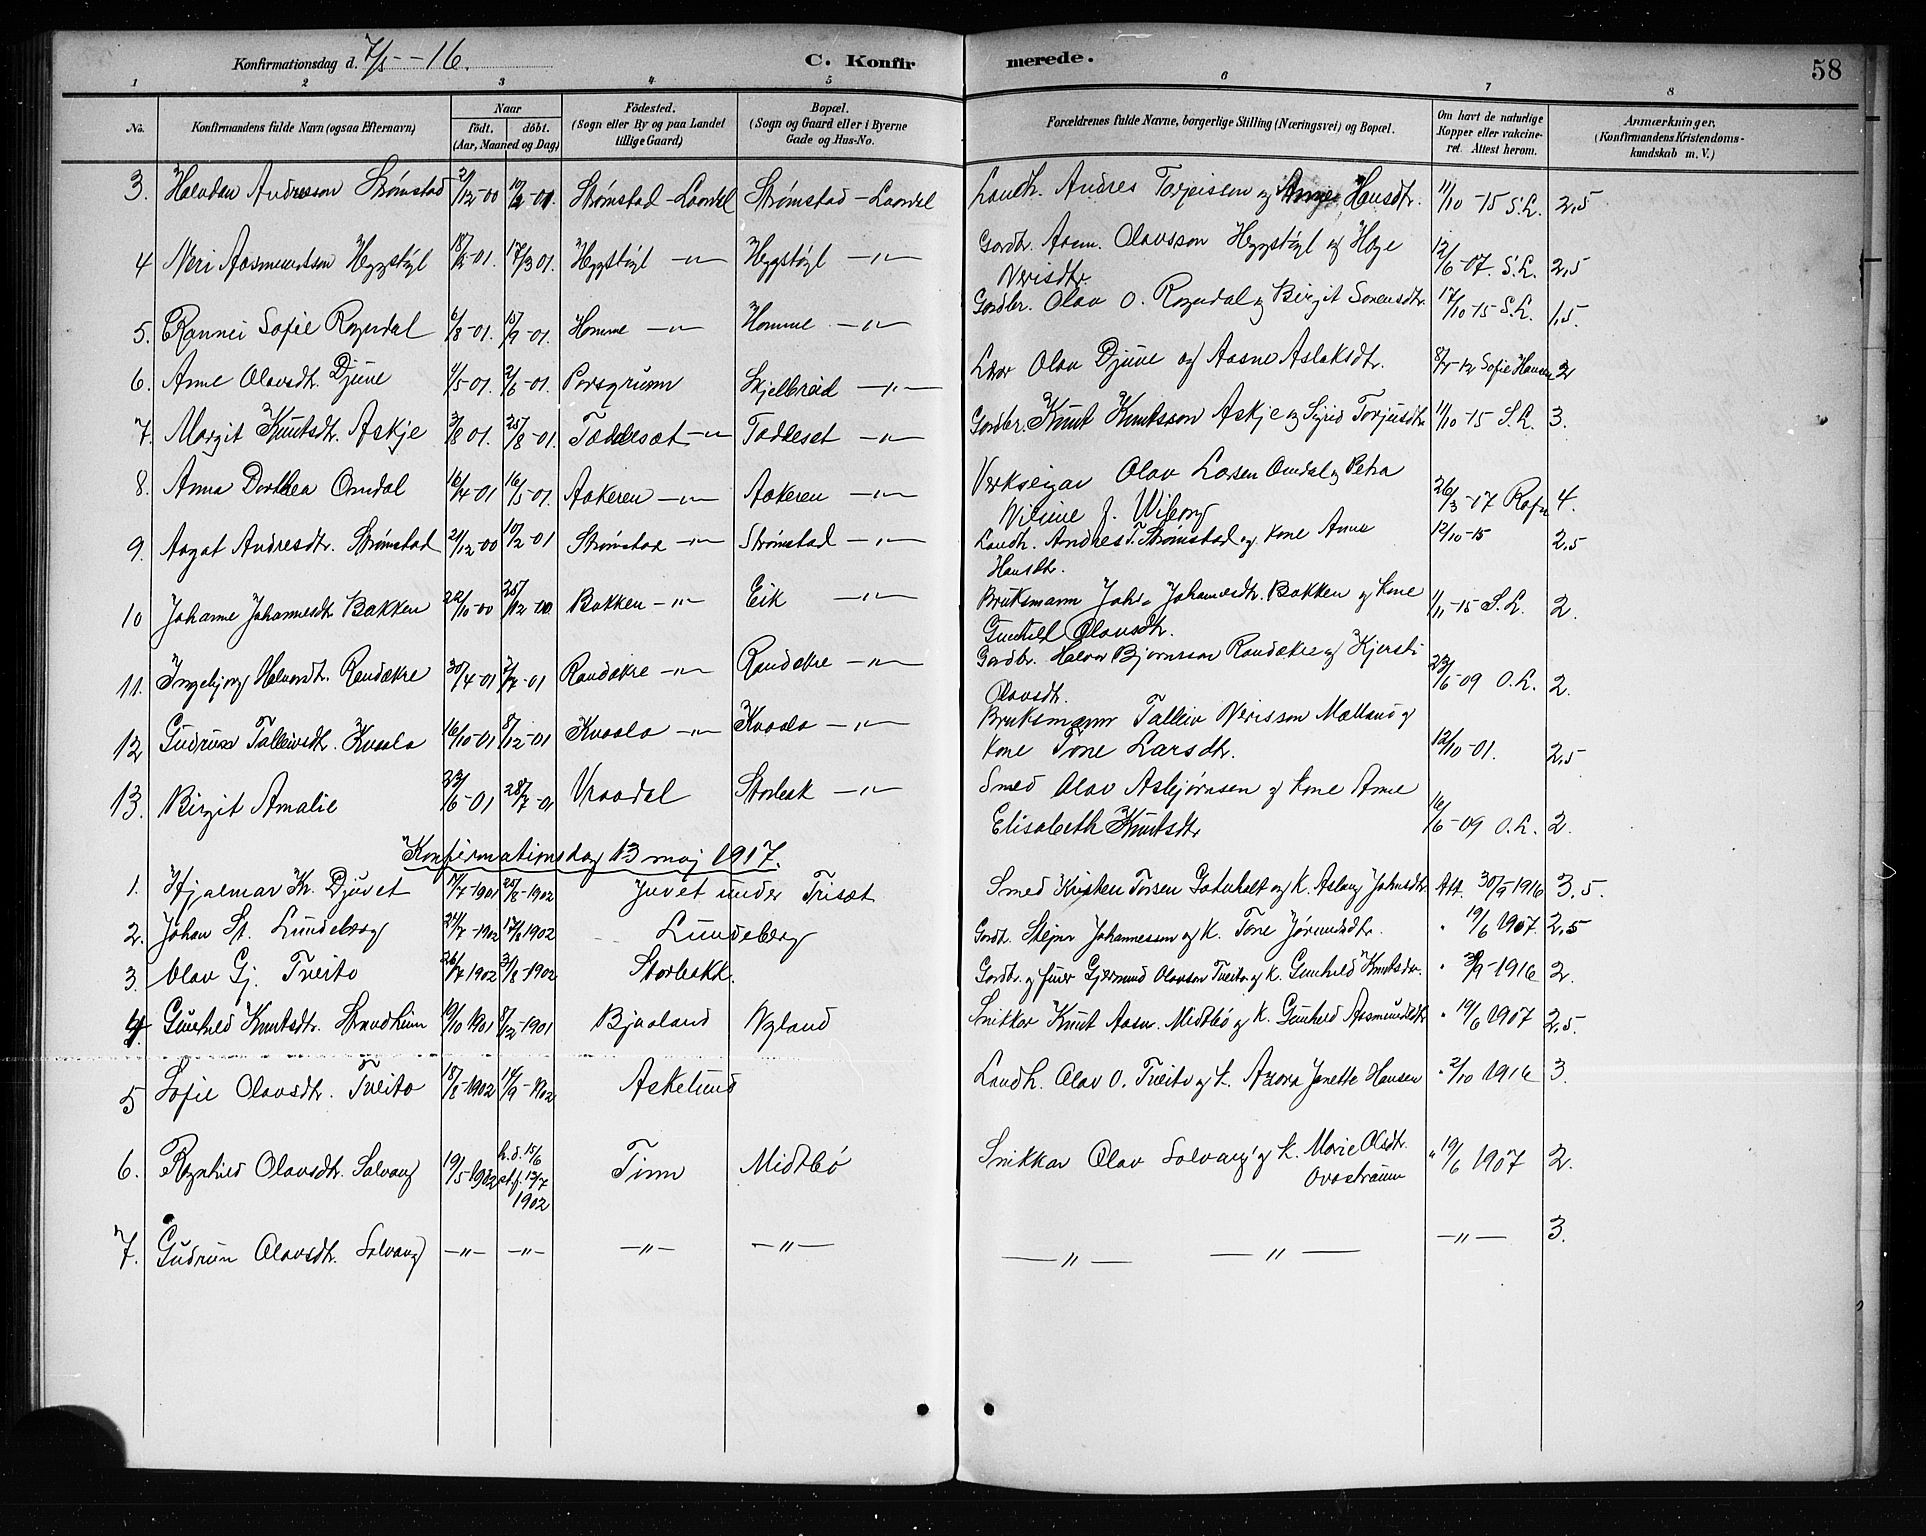 Konfirmationsdag d. 7/5 -16. C. Konfirmerede. 58
1 2 3 4 5 6 7 8
No. Konfirmandens fulde Navn (ogsaa Efternavn) Naar födt. döbt. (Aar, Maaned og Dag) Födested. (Sogn eller By og paa Landet tillige Gaard) Bopæl. (Sogn og Gaard eller i Byerne Gade og Hus-No. Forældrenes fulde Navne, borgerlige Stilling (Næringsvei) og Bopæl. Om havt de naturlige Kopper eller vakcineret. Attest herom. Anmærkninger, (Konfirmandens Kristendomskundskab m. V.)
3. Halvdan Andresson Strømstad 2/12-00 10/2-01. Strømstad - Laardal Strømstad - Laardal Landh. Andres Torjeissen og Anne Hansdtr. 11/10-15 S.L. 2,5
4 Neri Aasmundson Heggstøyl 18/2-01. 17/3 01. Heggstøyl -"- Heggstøyl -"- Gardbr. Aasm. Olavsson Heggstøyl og Hæge Nerisdtr. 12/6-07. S.L. 2,5
5. Rannei Sofie Roysdal 6/8-01. 15/9-01. Homme -"- Homme -"- Gardbr. Olav O. Roysdal og Birgit Sorensdtr. 17/10-15 S.L. 1,5.
6. Anne Olavsdtr. Djuve 1/5-01. 2/6-01. Porsgrunn Skjelbreid -"- Lærar Olav Djuve og Aasne Aslaksdtr. Sofie Hansen 2
7. Margit Knutsdtr. Askje 3/8 01. 25/8-01. Tæddesæt -"- Taddeset -"- Gardbr. Knut Knutsson Askje og Sigrid Torjusdtr. 11/10-15 S.L. 3.
8. Anna Dorthea Omdal 16/4-01 16/5-01. Aakeren -"- Aakeren -"- Verkseigar Olav Larsen Omdal og Petra Vilime f. Wiborg 26/3-17 4.
9. Aagot Andresdtr. Strømstad 21/12-00 10/2-01 Strømstad -"- Strømstad -"- Landh. Andres T. Strømstad og kone Anna Hansdtr. 12/10-15 2,5
10 Johanne Johannesdtr Bakken 22/10-00 25/12-00 Bakken -"- Eik -"- Bruksmann Joh. Johannesdtr. Bakken og kone Gunhild Olavsdtr. 1/11-15 S.L. 2.
11. Ingebjorg Halvordtr. Raudækre 30/4-01 2/7-01 Raudækre -"- Raudækre -"- Gardbr. Halvor Bjornsson Raudækre og Kjersti Olavsdtr. 23/6-09 O.L. 2.
12 Gudrun Talleivsdtr. Kvaala 16/10-01 8/12-01 Kvaala -"- Kvaala -"- Bruksmann Talleiv Nerisson Mælland og kone Tone Larsdtr. 12/10-01. 2,5
13. Birgit Amalie 23/6-01 28/7-01 Vraadal Storbak -"- Smed Olav Asbjørnsen og kone Anne Elisabeth Knutsdtr 16/6-09 O.L. 2.
Konfirmationsdag 13 maj 1917.
1. Hjalmar Kr. Djuvet 7/7-1901 25/8-1902 Juvet under Trisæt Smed Kristen Torsen Gotuholt og K. Aslaug Johnsdtr Att. 30/9 1916 3,5.
2. Johan St. Lundeberg 24/7-1902 17/8 1902 Lundeberg Gardbr. Steinar Johannessen og K. Tone Jørundsdtr. " 19/6 1907. 2,5
3. Olav Gj. Tveito 26/7 1902 31/8-1902 Storbakk. Gardbr. og fører Gjermund Olavson Tveito og K. Gunhild Knutsdtr. " 1916 2.
4 Gunhild Knutsdtr. Strandheim 19/10 1901 8/12-1901 Bjaaland Nyland Snikkar Knut Aasm. Midtbö og K. Gunhild Aasmundsdtr " 19/6 1907 2,5.
5 Sofie Olavsdtr. Tveito 18/8-1902 14/9-1902 Askelund Landh. Olav O. Tveito og K. Azora Janette Hansen " 2/10 1916 3.
6. Ragnhild Olavsdtr. Solvang 19/5 1902 h.d. 15/6 st.f. 13/7 1902 Tinn Midtbö Snikkar Olav Solvang og K. Marie Olsdtr. Ovastraum " 19/6 1907 2.
7. Gudrun Olavsdtr. Solvang -"- -"- -"- -"- -"- -"- -"- 3.